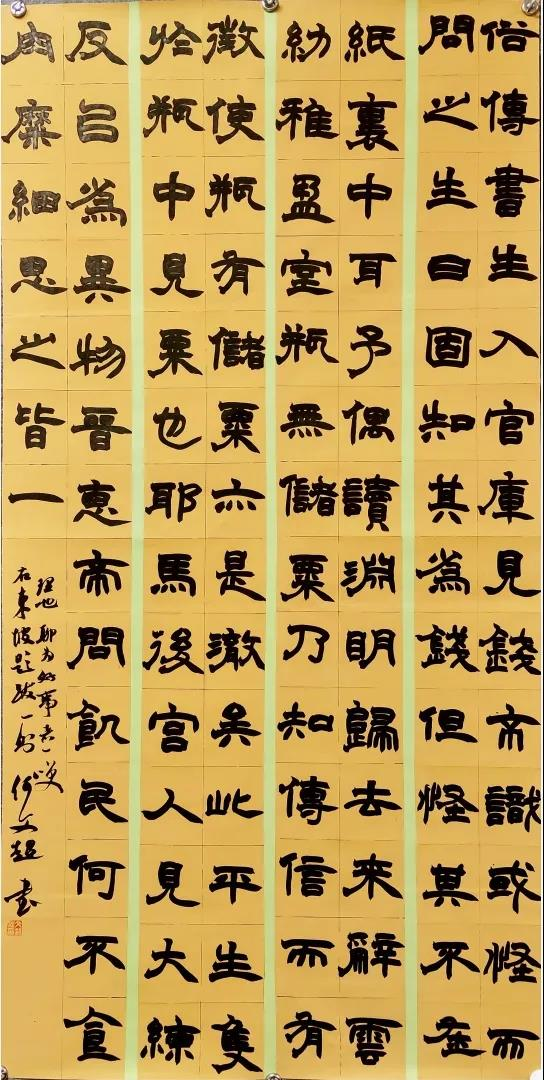 俗傳書生入官庫見錢不識或怪而
問之生曰固知其為錢但怪其不在
紙裏中耳予偶讀淵明歸去來辭雲
幼稚盈室瓶無儲粟乃知傳信而有
徵使瓶有儲粟亦是微矣此平生隻
於瓶中見粟也耶馬後宮人見大練
反以為異物晉惠帝問飢民何不食
肉糜細思之皆一
理也聊為好事者一笑
右東坡題跋一則 何文超書